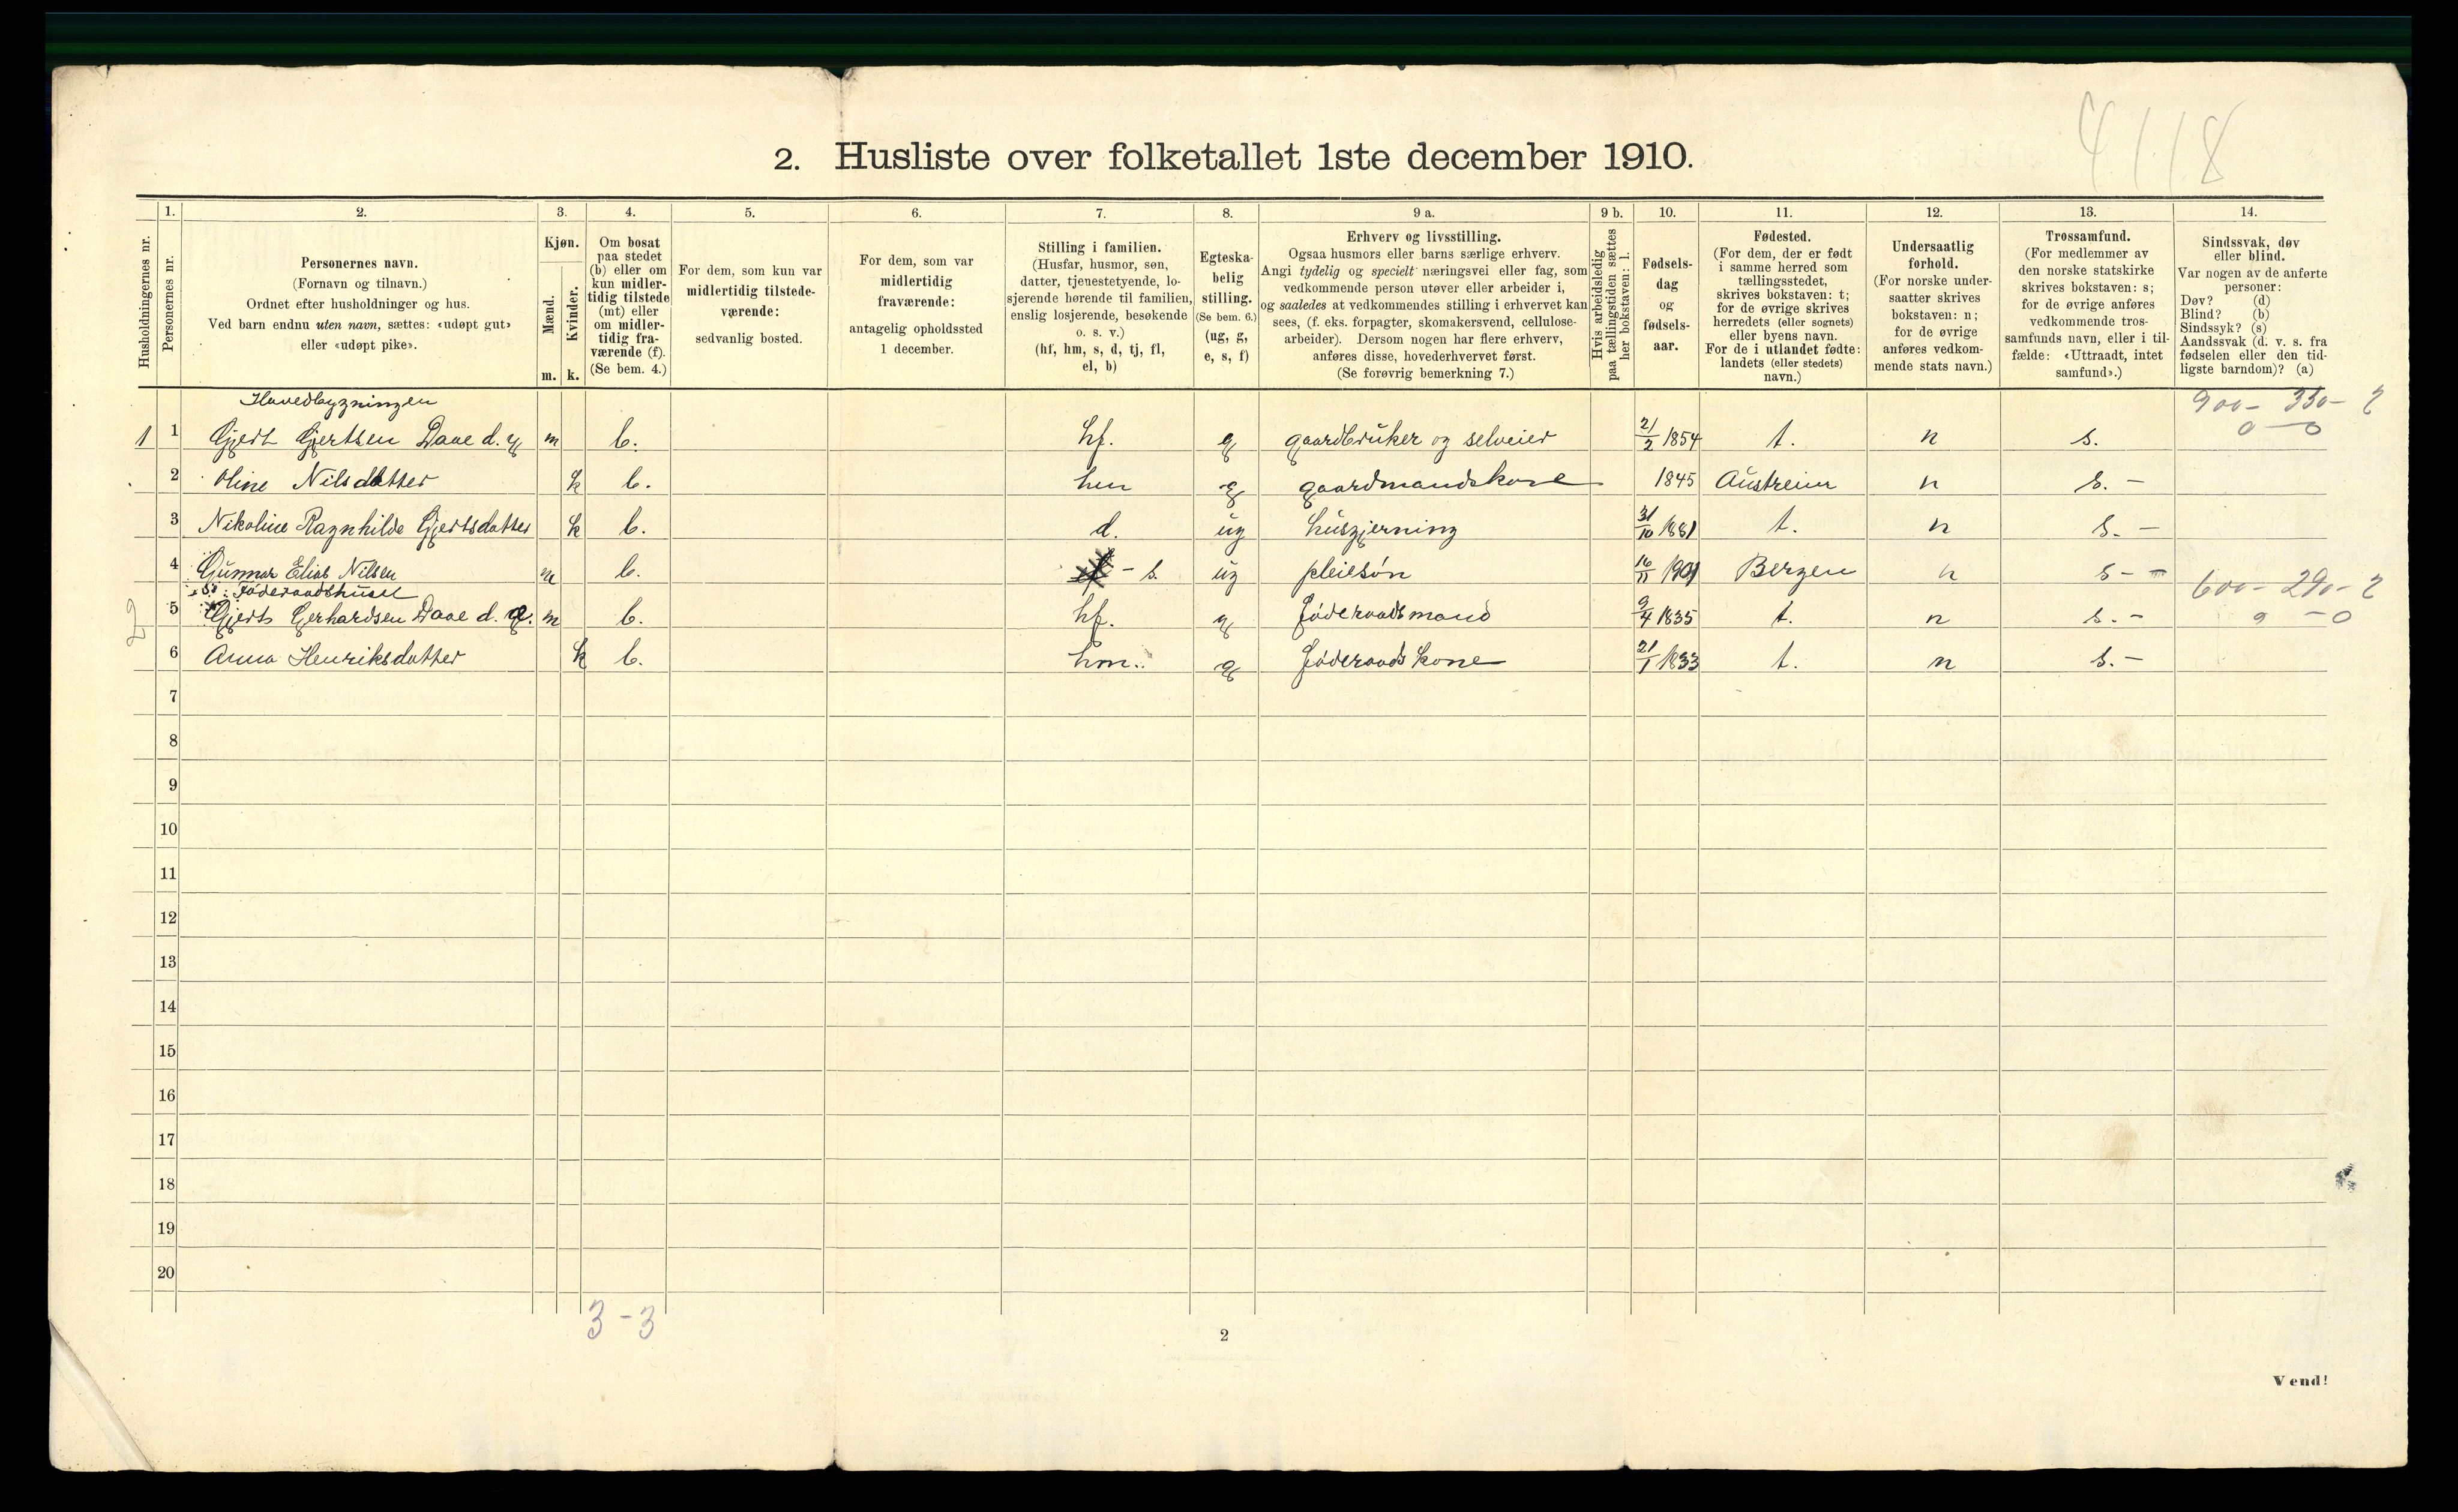 4118
2. Husliste over folketallet 1ste december 1910.
1. 2. 3. 4. 5. 6. 7. 8. 9 a. 9 b. 10. 11. 12. 13. 14.
Husholdningernes nr.
Personernes nr.
Personernes navn.
(Fornavn og tilnavn.)
Ordnet efter husholdninger og hus.
Ved barn endnu uten navn, sættes: «udøpt gut»
eller «udøpt pike».
Kjøn.
Mænd.
Kvinder.
m. k.
Om bosat
paa stedet
(b) eller om
kun midler-
tidig tilstede
(mt) eller
om midler-
tidig fra-
værende (f).
(Se bem. 4.)
For dem, som kun var
midlertidig tilstede-
værende:
sedvanlig bosted.
For dem, som var
midlertidig
fraværende:
antagelig opholdssted
1 december.
Stilling i familien.
(Husfar, husmor, søn,
datter, tjenestetyende, lo-
sjerende hørende til familien,
enslig losjerende, besøkende
o. s. v.)
(hf, hm, s, d, tj, fl,
el, b)
Egteska-
belig
stilling.
(Se bem. 6.)
(ug, g,
e, s, f)
Erhverv og livsstilling.
Ogsaa husmors eller barns særlige erhverv.
Angi tydelig og specielt næringsvei eller fag, som
vedkommende person utøver eller arbeider i,
og saaledes at vedkommendes stilling i erhvervet kan
sees, (f. eks. forpagter, skomakersvend, cellulose-
arbeider). Dersom nogen har flere erhverv,
anføres disse, hovederhvervet først.
(Se forøvrig bemerkning 7.)
Hvis arbeidsledig
paa tællingstiden sættes
her bokstaven: l.
Fødsels-
dag
og
fødsels-
aar.
Fødested.
(For dem, der er født
i samme herred som
tællingsstedet,
skrives bokstaven: t;
for de øvrige skrives
herredets (eller sognets)
eller byens navn.
For de i utlandet fødte:
landets (eller stedets)
navn.)
Undersaatlig
forhold.
(For norske under-
saatter skrives
bokstaven: n;
for de øvrige
anføres vedkom-
mende stats navn.)
Trossamfund.
(For medlemmer av
den norske statskirke
skrives bokstaven: s;
for de øvrige anføres
vedkommende tros-
samfunds navn, eller i til-
fælde: «Uttraadt, intet
samfund».)
Sindssvak, døv
eller blind.
Var nogen av de anførte
personer:
Døv? (d)
Blind? (b)
Sindssyk? (s)
Aandssvak (d. v. s. fra
fødselen eller den tid-
ligste barndom)? (a)
Hovedbygningen 900 - 350 - 2
1 1 Gjert Gjertsen Daae d. y m b. hf. g gaardbruker og selveier 21/2 1854 t. n s. 0 - 0
2 Oline Nilsdatter k b. hm g gaardmandskone 1845 Austreim n s. -
3 Nikoline Ragnhilde Gjertsdatter k b. d. ug husgjerning 31/10 1881 t. n s. -
4 Gunnar Elias Nilsen m b. - s. ug pleiesøn 16/11 1901 Bergen n s -
Føderaadshuset 600 - 290 - 2
2 5 Gjerts Gerhardsen Daae d. e. m b. hf. g føderaadsmand 9/4 1835 t. n s. - 0 - 0
6 Anna Henriksdatter k b. hm. g føderaadskone 21/1 1833 t. n s. -
7
8
9
10
11
12
13
14
15
16
17
18
19
20
3 - 3
2
Vend!